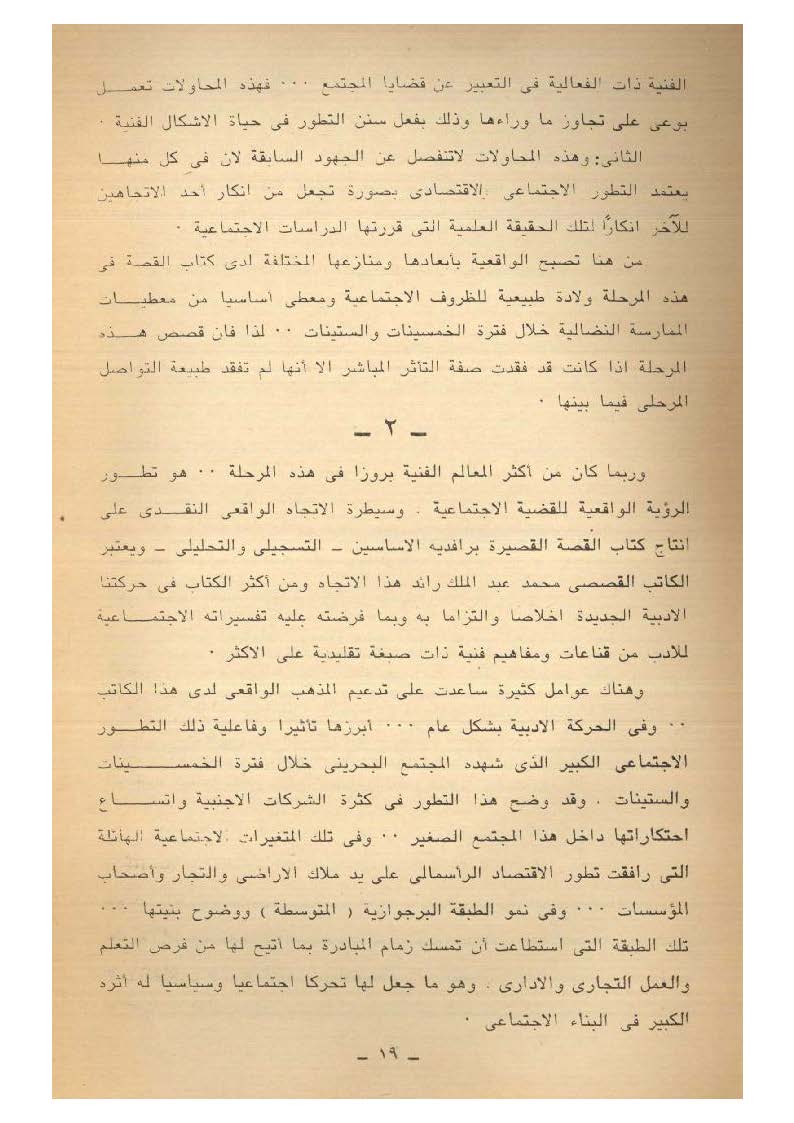 الفنية ذات الفعالية فى التعبير عن قضايا المجتمع ٠٠٠ فهذه المحاولات تعمـــل
بوعى على تجاوز ما وراءها وذلك بفعل سنن التطور فى حياة الاشكال الفنية ٠
الثانى: وهذه المحاولات لاتنفصل عن الجهود السابقة لان فى كل منهـــا
يعتمد التطور الاجتماعى الاقتصادى بصورة تجعل من انكار أحد الاتجاهين
للآخر انكارًا لتلك الحقيقة العلمية التى قررتها الدراسات الاجتماعية ٠
من هنا تصبح الواقعية بأبعادها ومنازعها المختلفة لدى كتاب القصة فى
هذه المرحلة ولادة طبيعية للظروف الاجتماعية ومعطى أساسيا من معطيــات
الممارسة النضالية خلال فترة الخمسينات والستينات ٠٠ لذا فان قصص هـــذه
المرحلة اذا كانت قد فقدت صفة التأثر المباشر الا أنها لم تفقد طبيعة التواصل
المرحلى فيما بينها ٠
ــ ٢ ــ
وربما كان من أكثر المعالم الفنية بروزا فى هذه المرحلة ٠٠ هو تطـــور
الرؤية الواقعية للقضية الاجتماعية . وسيطرة الاتجاه الواقعى النقــدى على
انتاج كتاب القصة القصيرة برافديه الاساسين ــ التسجيلى والتحليلى ــ ويعتبر
الكاتب القصصى محمد عبد الملك رائد هذا الاتجاه ومن أكثر الكتاب فى حركتنا
الادبية الجديدة اخلاصا والتزاما به وبما فرضته عليه تفسيراته الاجتمــاعية
للادب من قناعات ومفاهيم فنية ذات صبغة تقليدية على الاكثر ٠
وهناك عوامل كثيرة ساعدت على تدعيم المذهب الواقعى لدى هذا الكاتب
٠٠ وفى الحركة الادبية بشكل عام ٠٠٠ أبرزها تأثيرا وفاعلية ذلك التطـــور
الاجتماعى الكبير الذى شهده المجتمع البحرينى خلال فترة الخمســـينات
والستينات . وقد وضح هذا التطور فى كثرة الشركات الاجنبية واتســـاع
احتكاراتها داخل هذا المجتمع الصغير ٠٠ وفى تلك المتغيرات الاجتماعية الهائلة
التى رافقت تطور الاقتصاد الرأسمالى على يد ملاك الاراضى والتجار وأصحاب
المؤسسات ٠٠٠ وفى نمو الطبقة البرجوازية ( المتوسطة ) ووضوح بنيتها ٠٠٠
تلك الطبقة التى استطاعت أن تمسك زمام المبادرة بما أتيح لها من فرص التعلم
والعمل التجارى والادارى . وهو ما جعل لها تحركا اجتماعيا وسياسيا له أثره
الكبير فى البناء الاجتماعى ٠
ــ ١٩ ــ